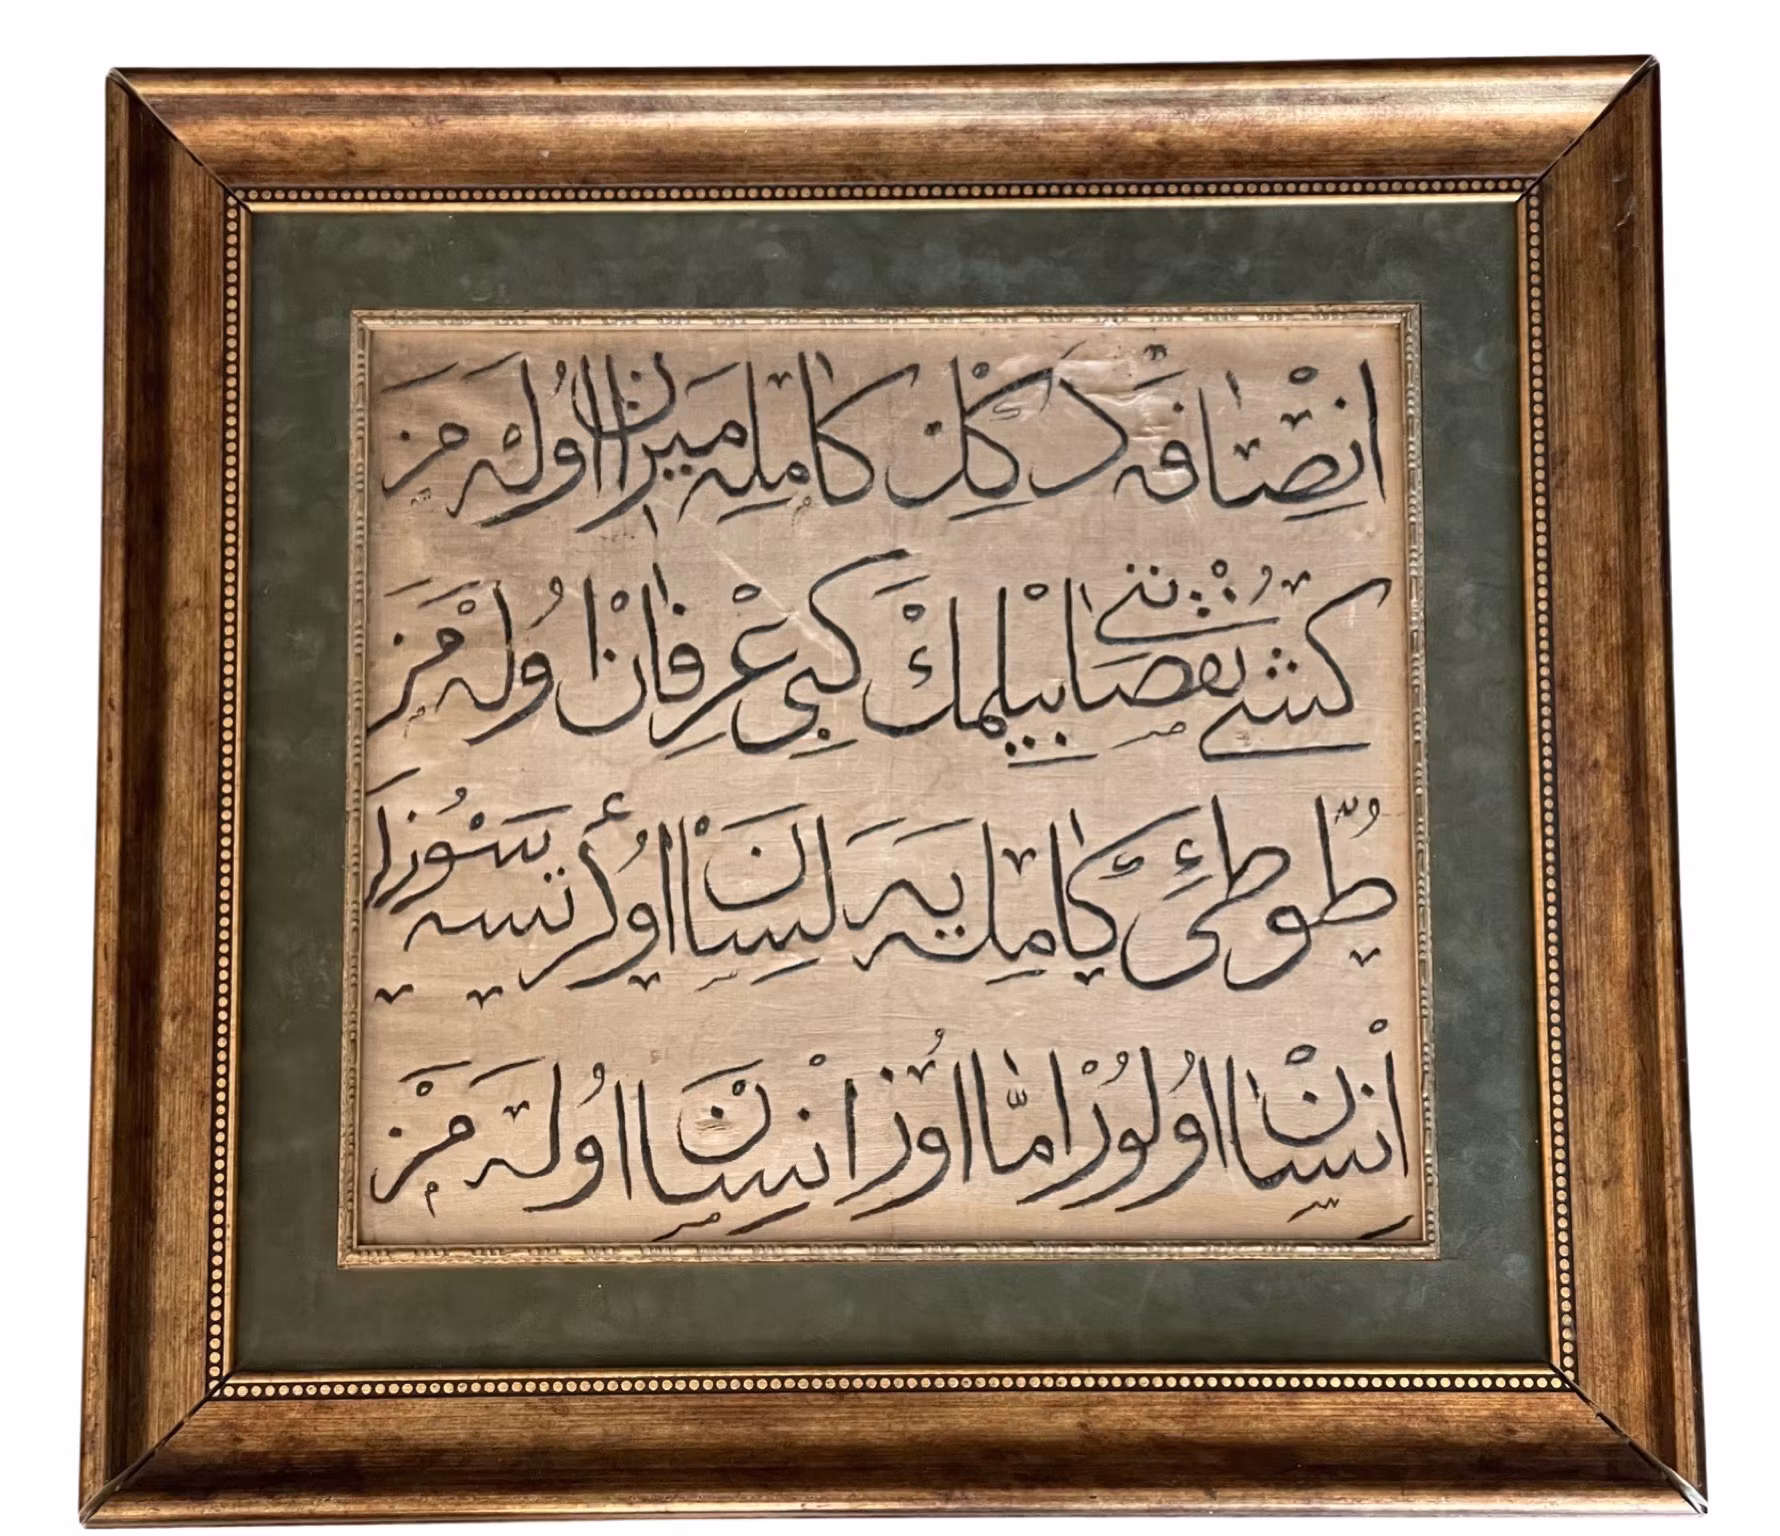 اِنْصَافَه دَكِلْ كَامِلِه مِيزَان اُولَه مَز
كِشِي نُقْصَانِنِي بِيلْمَكْ كَبِي عِرْفَانْ اُولَه مَزْ
طُوطِئِ كَامِلِه يَه لِسَانْ اُوكْرَتْسَه سُوزا
اِنْسَانْ اُولُورْ اَمَّا اُوزْ اِنْسَانْ اُولَه مَزْ